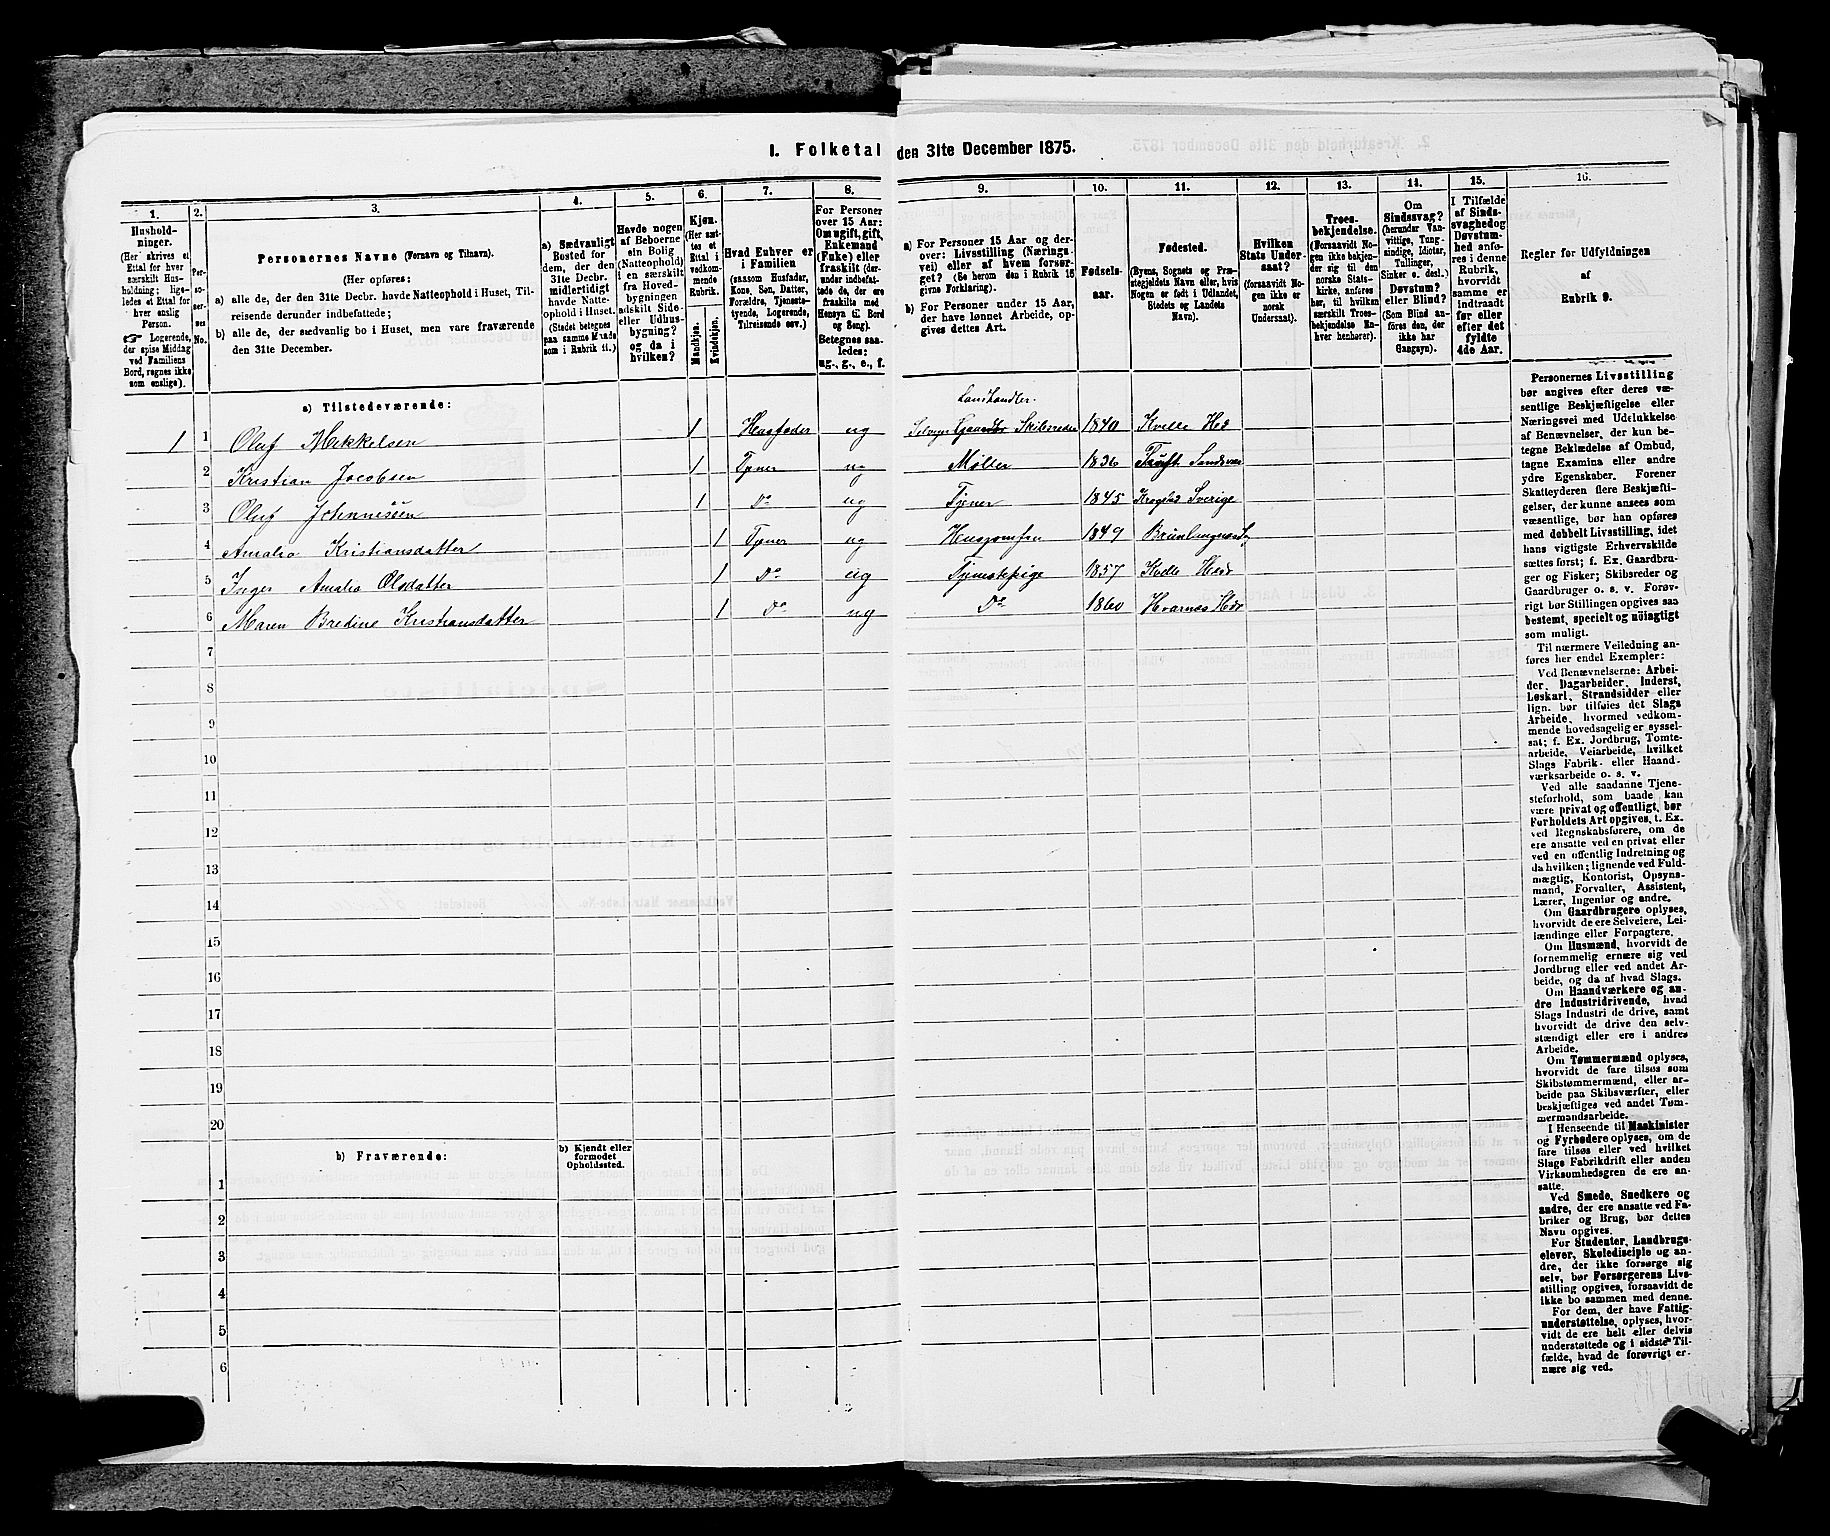 I. Folketal den 31te December 1875.
1.
Husholdninger.
(Her skrives et
Ettal for hver
særskilt Husholdning;
ligeledes et Ettal for
hver enslig
Person.
☞ Logerende,
der spise Middag
ved Familiens
Bord, regnes ikke
som enslige).
2.
Personernes
No.
3.
Personernes Navne (Fornavn og Tilnavn).
(Her opføres:
a) alle de, der den 31te Decbr. havde Natteophold i Huset, Tilreisende
derunder indbefattede;
b) alle de, der sædvanlig bo i Huset, men vare fraværende
den 31te December.
4.
a) Sædvanligt
Bosted for
dem, der den
31te Decbr.
midlertidigt
havde Natteophold
i Huset.
(Stedet betegnes
paa samme Maade
som i Rubrik 11.)
5.
Havde nogen
af Beboerne
sin Bolig
(Natteophold)
i en særskilt
fra Hovedbygningen
adskilt Side-
eller Udhusbygning?
og da i
hvilken?
6.
Kjøn.
(Her sættes
et
Ettal i
vedkommende
Rubrik.
Mandkjøn.
Kvindekjøn.
7.
Hvad Enhver er
i Familien
(saasom Husfader,
Kone, Søn, Datter,
Forældre, Tjenestetyende,
Logerende,
Tilreisende osv.)
8.
For Personer
over 15 Aar:
Om ugift, gift,
Enkemand
(Enke) eller
fraskilt (derunder
indbefattede
de, der ere
fraskilte med
Hensyn til Bord
og Seng).
Betegnes saaledes:
ug., g., e., f.
9.
a) For Personer 15 Aar og derover:
Livsstilling (Næringsvei)
eller af hvem forsørget?
(Se herom den i Rubrik 16
givne Forklaring).
b) For Personer under 15 Aar,
der have lønnet Arbeide, opgives
dettes Art.
10.
Fødselsaar.
11.
Fødested.
(Byens, Sognets og Præstegjeldets
Navn eller, hvis
Nogen er født i Udlandet,
Stedets og Landets
Navn).
12.
Hvilken
Stats Undersaat?
(forsaavidt Nogen
ikke er
norsk
Undersaat).
13.
Troesbekjendelse.
(Forsaavidt Nogen
ikke bekjender
sig til den
norske Statskirke,
anføres
her, til hvilken
særskilt Troesbekjendelse
Enhver
henhører).
14.
Om
Sindssvag?
(herunder Vanvittige,
Tungsindige,
Idioter,
Tullinger,
Sinker o. desl.)
Døvstum?
eller Blind?
(Som Blind anføres
den, der
ikke har
Gangsyn).
15.
I Tilfælde
af Sindssvaghed
og
Døvstumhed
anføres
i denne
Rubrik,
hvorvidt
samme er
indtraadt
før eller
efter det
fyldte
4de Aar.
16.
Regler for Udfyldningen
af
Rubrik 9.
a) Tilstedeværende:
Landhandler.
1 1 Oluf Mikkelsen 1 Husfader ug Selveier Gaardbr Skibsreder 1840 Kville Hed
2 Kristian Jacobsen 1 Tjener ug Møller 1836 Sandsvær
3 Oluf Johannesen 1 Do ug Tjener 1845 Krogstad Sverige
4 Amalia Kristiansdatter 1 Tjener ug Husjomfru 1849 Brunlangnæs
5 Inger Amalia Olsdatter 1 Do ug Tjenestepige 1857 Kville Hedr
6 Maren Bredine Kristiansdatter 1 Do ug Do 1860 Hvarnes Hedr
7
8
9
10
11
12
13
14
15
16
17
18
19
20
b) Fraværende:
b) Kjendt eller
formodet
Opholdssted.
1
2
3
4
5
6
Personernes Livsstilling
bør angives efter deres væsentlige
Beskjæftigelse eller
Næringsvei med Udelukkelse
af Benævnelser, der kun betegne
Beklædelse af Ombud,
tagne Examina eller andre
ydre Egenskaber. Forener
Skatteyderen flere Beskjæftigelser,
der kunne ansees som
væsentlige, bør han opføres
med dobbelt Livsstilling, idet
hans vigtigste Erhvervskilde
sættes først; f. Ex. Gaardbruger
og Fisker; Skibsreder og
Gaardbruger o. s. v. Forøvrigt
bør Stillingen opgives saa
bestemt, specielt og nöiagtigt
som muligt.
Til nærmere Veiledning anføres
her endel Exempler:
Ved Benævnelserne: Arbeider,
Dagarbeider, Inderst,
Løskarl, Strandsidder eller
lign. bør tilføies det Slags
Arbeide, hvormed vedkommende
hovedsagelig er sysselsat;
f. Ex. Jordbrug, Tomtearbeide,
Veiarbeide, hvilket
Slags Fabrik- eller Haandværksarbeide
o. s. v.
Ved alle saadanne Tjenesteforhold,
som baade kan
være privat og offentligt, bør
Forholdets Art opgives, t. Ex.
ved Regnskabsførere, om de
ere ansatte ved en privat eller
ved en offentlig Indretning og
da hvilken; lignende ved Fuldmægtig,
Kontorist, Opsynsmand,
Forvalter, Assistent,
Lærer, Ingeniør og andre.
Om Gaardbrugere oplyses,
hvorvidt de ere Selveiere, Leilændinge
eller Forpagtere.
Om Husmænd, hvorvidt de
fornemmelig ernære sig ved
Jordbrug eller ved andet Arbeide,
og da af hvad Slags.
Om Haandværkere og andre
Industridrivende, hvad
Slags Industri de drive, samt
hvorvidt de drive den selvstændigt
eller ere i andres
Arbeide.
Om Tømmermænd oplyses,
hvorvidt de fare tilsøs som
Skibstømmermænd, eller arbeide
paa Skibsværfter, eller
beskjæftiges ved andet Tømmermandsarbeide.
I Henseende til Maskinister
og Fyrbødere oplyses, om de
fare tilsøs eller ved hvilket
Slags Fabrikdrift eller anden
Virksomhedsgren de ere ansatte.
Ved Smede, Snedkere og
andre, der ere ansatte ved Fabriker
og Brug, bør dettes
Navn opgives.
For Studenter, Landbrugselever,
Skoledisciple og andre,
der ikke forsørge sig
selv, bør Forsørgerens Livsstilling
opgives, forsaavidt de
ikke bo sammen med denne.
For dem, der have Fattigunderstøttelse,
oplyses, hvorvidt
de ere helt eller delvis
understøttede og i sidste Tilfælde,
hvad de forøvrigt ernære
sig ved.